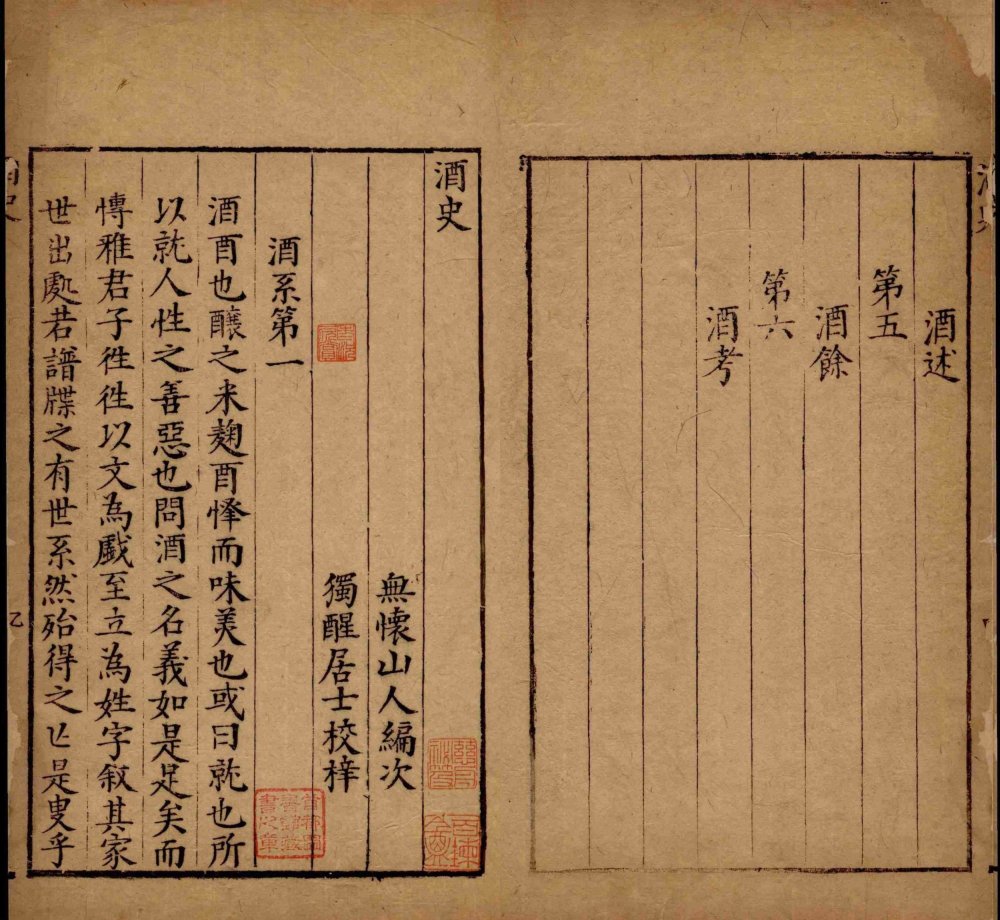 酒述
第五
酒餘
第六
酒考
酒史
無懷山人編次
獨醒居士校梓
酒系第一
酒酉也釀之米麹酉懌而味美也或曰就也所
以就人性之善惡也問酒之名義如是足矣而
愽雅君子徃徃以文為戱至立為姓字叙其家
世出處若譜牒之有世系然殆得之亡是叟乎
首都圖
書館藏
書之章